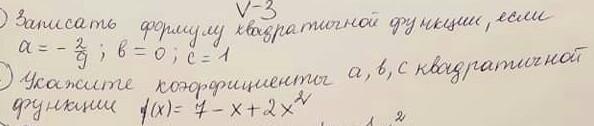 V-3
) Записать формулу квадратичной функции, если
a = - 2/9 ; b = 0 ; c = 1
) Укажите коэффициенты a, b, c квадратичной
функции f(x) = 7 - x + 2x²